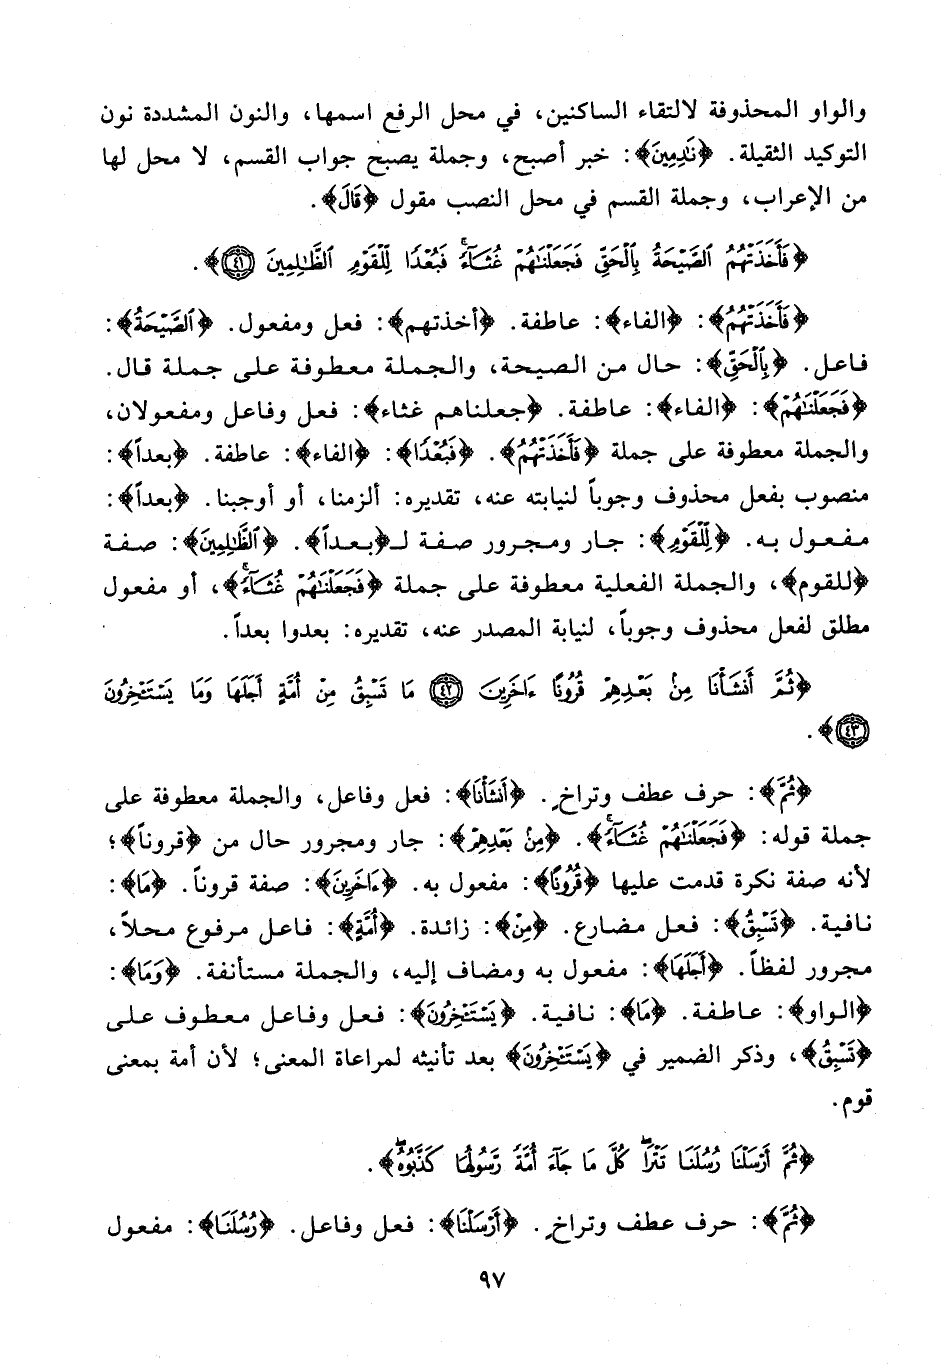 والواو المحذوفة لالتقاء الساكنين، في محل الرفع اسمها، والنون المشددة نون
التوكيد الثقيلة. ﴿نَٰدِمِينَ﴾: خبر أصبح، وجملة يصبح جواب القسم، لا محل لها
من الإعراب، وجملة القسم في محل النصب مقول ﴿قَالَ﴾.
﴿فَأَخَذَتْهُمُ ٱلصَّيْحَةُ بِٱلْحَقِّ فَجَعَلْنَٰهُمْ غُثَآءً ۚ فَبُعْدًا لِّلْقَوْمِ ٱلظَّٰلِمِينَ ٤١﴾.
﴿فَأَخَذَتْهُمُ﴾: ﴿الفاء﴾: عاطفة. ﴿أخذتهم﴾: فعل ومفعول. ﴿ٱلصَّيْحَةُ﴾:
فاعل. ﴿بِٱلْحَقِّ﴾: حال من الصيحة، والجملة معطوفة على جملة قال.
﴿فَجَعَلْنَٰهُمْ﴾: ﴿الفاء﴾: عاطفة. ﴿جعلناهم غثاء﴾: فعل وفاعل ومفعولان،
والجملة معطوفة على جملة ﴿فَأَخَذَتْهُمُ﴾. ﴿فَبُعْدًا﴾: ﴿الفاء﴾: عاطفة. ﴿بعداً﴾:
منصوب بفعل محذوف وجوباً لنيابته عنه، تقديره: ألزمنا، أو أوجبنا. ﴿بعداً﴾:
مفعول به. ﴿لِّلْقَوْمِ﴾: جار ومجرور صفة لـ﴿بعداً﴾. ﴿ٱلظَّٰلِمِينَ﴾: صفة
﴿للقوم﴾، والجملة الفعلية معطوفة على جملة ﴿فَجَعَلْنَٰهُمْ غُثَآءً ۚ﴾، أو مفعول
مطلق لفعل محذوف وجوباً، لنيابة المصدر عنه، تقديره: بعدوا بعداً.
﴿ثُمَّ أَنشَأْنَا مِنۢ بَعْدِهِمْ قُرُونًا ءَاخَرِينَ ٤٢ مَا تَسْبِقُ مِنْ أُمَّةٍ أَجَلَهَا وَمَا يَسْتَـْٔخِرُونَ
٤٣﴾.
﴿ثُمَّ﴾: حرف عطف وتراخٍ. ﴿أَنشَأْنَا﴾: فعل وفاعل، والجملة معطوفة على
جملة قوله: ﴿فَجَعَلْنَٰهُمْ غُثَآءً ۚ﴾. ﴿مِنۢ بَعْدِهِمْ﴾: جار ومجرور حال من ﴿قروناً﴾؛
لأنه صفة نكرة قدمت عليها ﴿قُرُونًا﴾: مفعول به. ﴿ءَاخَرِينَ﴾: صفة قروناً. ﴿مَا﴾:
نافية. ﴿تَسْبِقُ﴾: فعل مضارع. ﴿مِنْ﴾: زائدة. ﴿أُمَّةٍ﴾: فاعل مرفوع محلاً،
مجرور لفظاً. ﴿أَجَلَهَا﴾: مفعول به ومضاف إليه، والجملة مستأنفة. ﴿وَمَا﴾:
﴿الواو﴾: عاطفة. ﴿مَا﴾: نافية. ﴿يَسْتَـْٔخِرُونَ﴾: فعل وفاعل معطوف على
﴿تَسْبِقُ﴾، وذكر الضمير في ﴿يَسْتَـْٔخِرُونَ﴾ بعد تأنيثه لمراعاة المعنى؛ لأن أمة بمعنى
قوم.
﴿ثُمَّ أَرْسَلْنَا رُسُلَنَا تَتْرَا ۖ كُلَّ مَا جَآءَ أُمَّةً رَّسُولُهَا كَذَّبُوهُ ۖ﴾.
﴿ثُمَّ﴾: حرف عطف وتراخٍ. ﴿أَرْسَلْنَا﴾: فعل وفاعل. ﴿رُسُلَنَا﴾: مفعول
٩٧